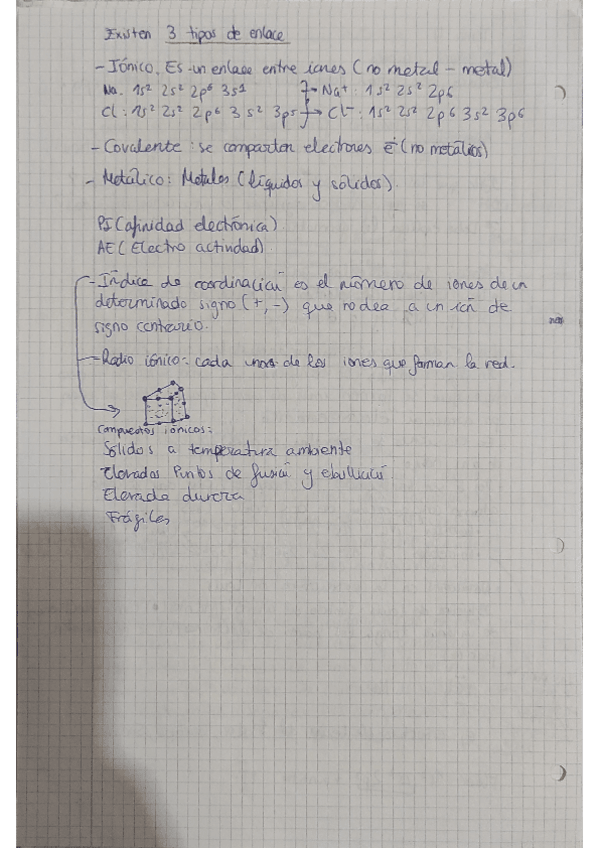 Existen 3 tipos de enlace
- Iónico. Es un enlace entre iones (no metal - metal)
Na: 1s² 2s² 2p⁶ 3s¹ }→ Na⁺: 1s² 2s² 2p⁶
Cl: 1s² 2s² 2p⁶ 3s² 3p⁵ }→ Cl⁻: 1s² 2s² 2p⁶ 3s² 3p⁶
- Covalente: se comparten electrones e⁻ (no metálicos)
- Metálico: Metales (líquidos y sólidos).
PI (afinidad electrónica)
AE (Electro actividad)
- Índice de coordinación es el número de iones de un
determinado signo (+, -) que rodea a un ión de
signo contrario.
- Radio iónico: cada unos de los iones que forman la red.
Compuestos iónicos:
Sólidos a temperatura ambiente
Elevados Puntos de fusión y ebullición
Elevada dureza
Frágiles